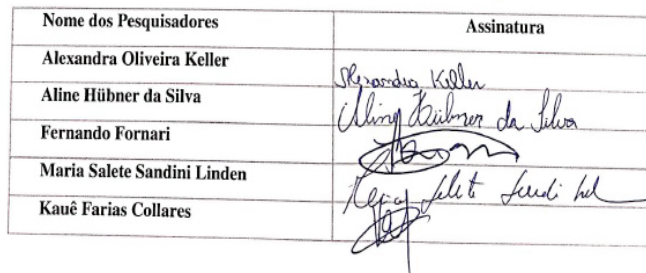 Nome dos Pesquisadores Assinatura
Alexandra Oliveira Keller Alexandra Keller
Aline Hübner da Silva Aline Hübner da Silva
Fernando Fornari
Maria Salete Sandini Linden Maria Salete
Kauê Farias Collares